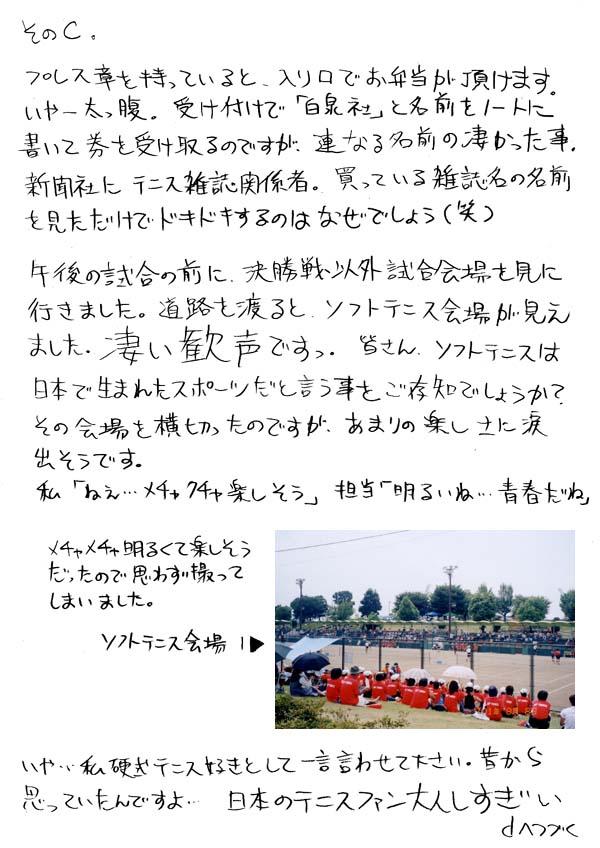 そのC。
プレス章を持っていると、入り口でお弁当が頂けます。
いやー太っ腹。受け付けで「白泉社」と名前をノートに
書いて券を受け取るのですが、連なる名前の凄かった事。
新聞社にテニス雑誌関係者。買っている雑誌名の名前
を見ただけでドキドキするのはなぜでしょう(笑)
午後の試合の前に、決勝戦以外試合会場を見に
行きました。道路を渡ると、ソフトテニス会場が見え
ました。凄い歓声ですっ。皆さん、ソフトテニスは
日本で生まれたスポーツだと言う事をご存知でしょうか?
その会場を横切ったのですが、あまりの楽しさに涙
出そうです。
私「ねぇ…メチャクチャ楽しそう」担当「明るいね…青春だね」
メチャメチャ明るくて楽しそう
だったので思わず撮って
しまいました。
ソフトテニス会場1▶
いや…私硬式テニス好きとして一言言わせて下さい。昔から
思っていたんですよ… 日本のテニスファン大人しすぎぃ
dへつづく